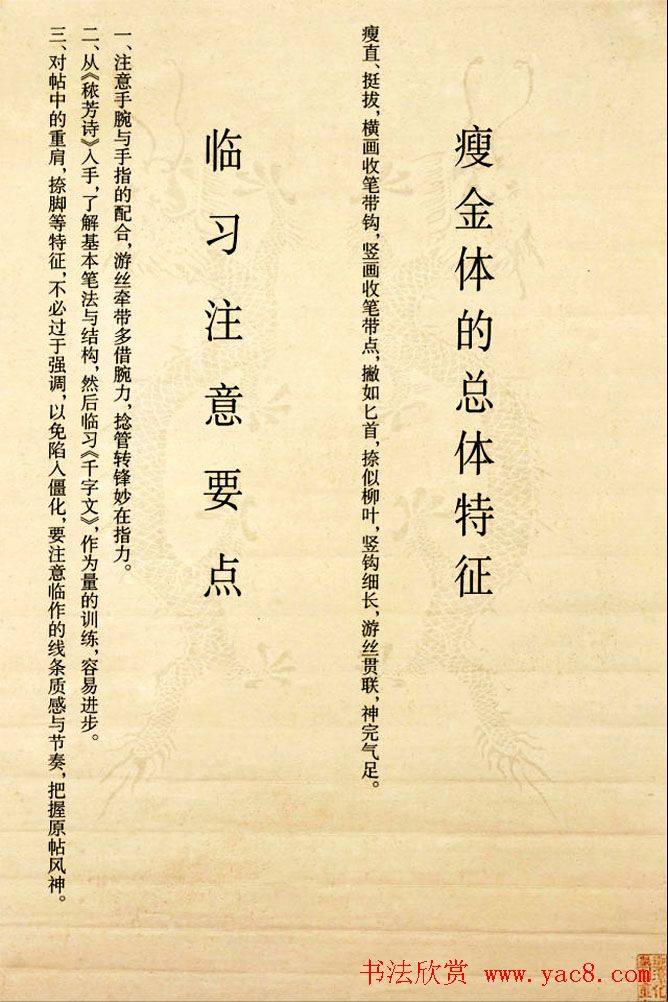 瘦金体的总体特征
瘦直、挺拔，横画收笔带钩，竖画收笔带点，撇如匕首，捺似柳叶，竖钩细长，游丝贯联，神完气足。
临习注意要点
一、注意手腕与手指的配合，游丝牵带多借腕力，捻管转锋妙在指力。
二、从《秾芳诗》入手，了解基本笔法与结构，然后临习《千字文》，作为量的训练，容易进步。
三、对帖中的重肩，捺脚等特征，不必过于强调，以免陷入僵化，要注意临作的线条质感与节奏，把握原帖风神。
书法欣赏 www.yac8.com